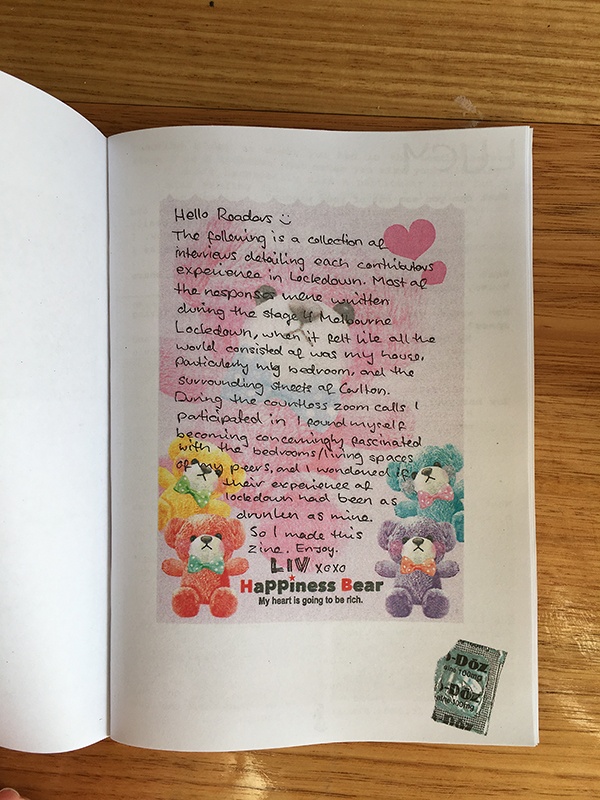 Hello Readers
The following is a collection of
interviews detailing each contributors
experience in Lockdown. Most of
the responses were written
during the stage 4 Melbourne
Lockdown, when it felt like all the
world consisted of was my house,
particularly my bedroom, and the
surrounding streets of Carlton.
During the countless zoom calls I
participated in I found myself
becoming concerningly fascinated
with the bedrooms/living spaces
of my peers, and I wondered if
their experience of
lockdown had been as
drunken as mine.
So I made this
zine. Enjoy.
LIV xoxo
HaPPiness Bear
My heart is going to be rich.
-Doz
100mg
-Doz
100mg